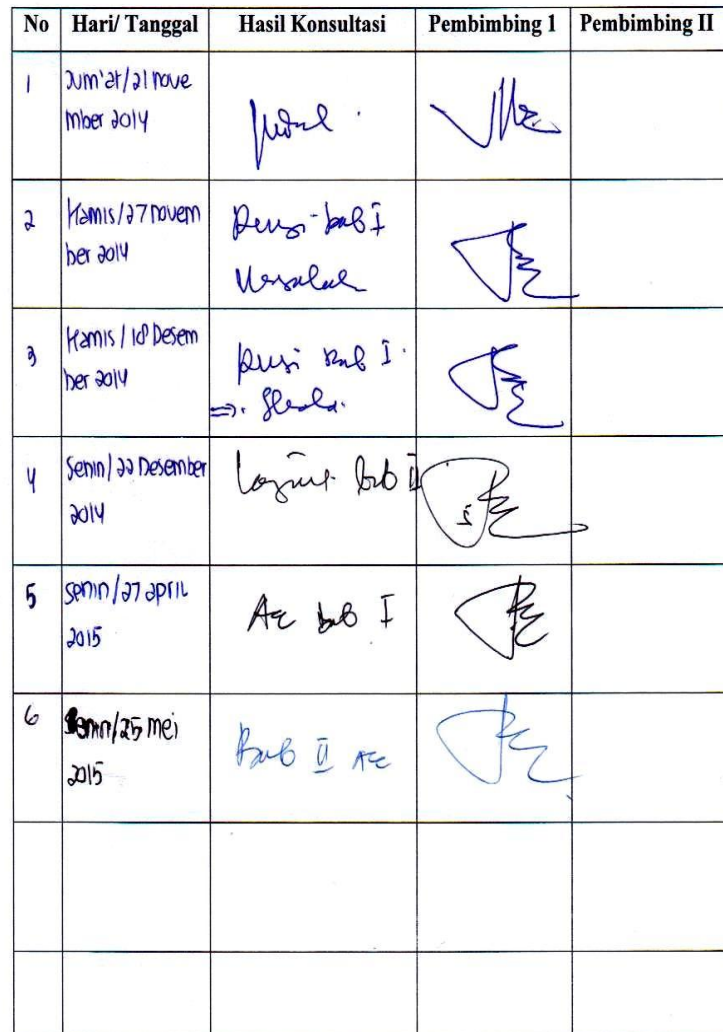 No Hari/ Tanggal Hasil Konsultasi Pembimbing 1 Pembimbing II
1 Jum'at/21 nove
mber 2014
Judul
2 Kamis/27 novem
ber 2014
Revisi bab I
Masalah
3 Kamis/18 Desem
ber 2014
Revisi bab I
4 Senin/22 Desember
2014
Lanjut bab II
5 Senin/27 april
2015
Acc bab I
6 Senin/25 mei
2015
Bab II Acc